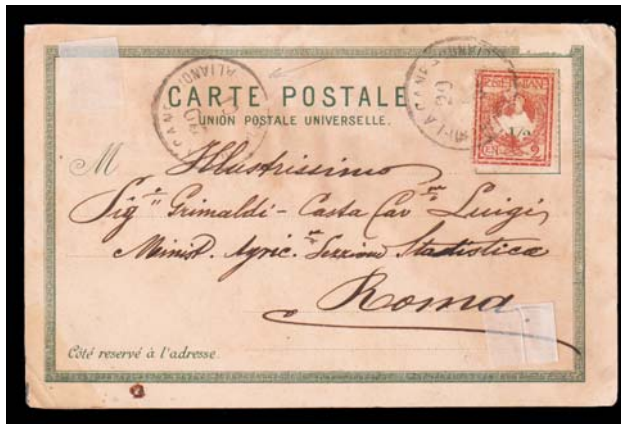 CARTE POSTALE
UNION POSTALE UNIVERSELLE.
1/2
2
M Illustrissimo
Sigr Grimaldi - Casta Cav re Luigi
Minist. Agric. re Sezione Statistica
Roma
Côté reservé à l'adresse.